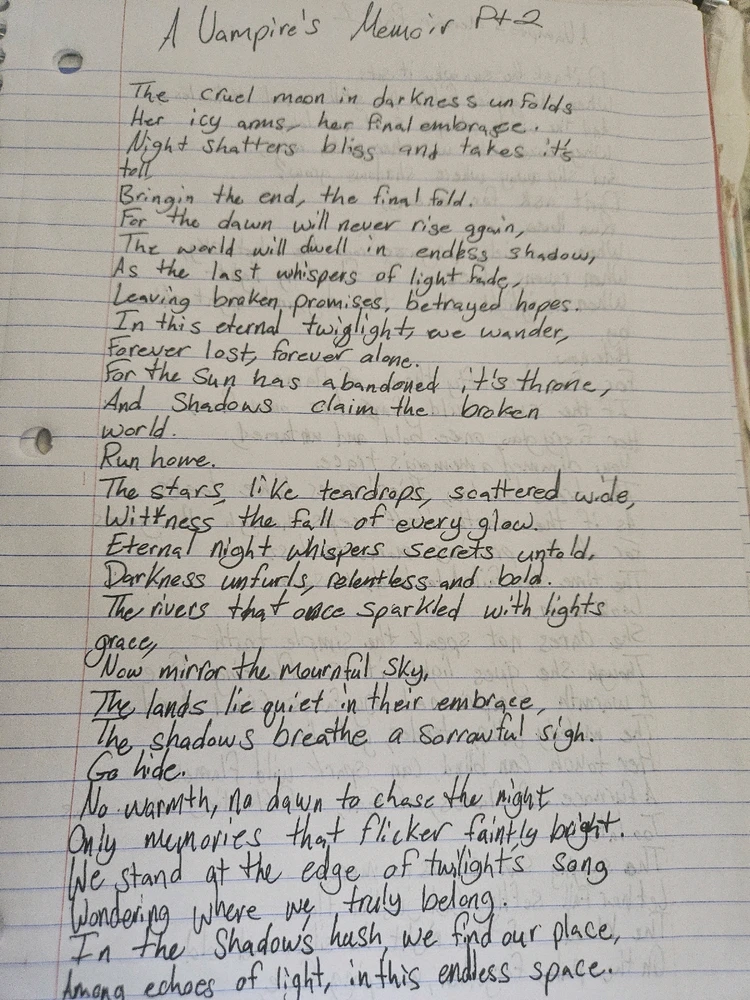 A Vampire's Memoir Pt 2
The cruel moon in darkness unfolds
Her icy arms, her final embrace.
Night shatters bliss and takes it's
toll
Bringin the end, the final fold.
For the dawn will never rise again,
The world will dwell in endless shadow,
As the last whispers of light fade,
Leaving broken promises, betrayed hopes.
In this eternal twiglight, we wander,
Forever lost, forever alone.
For the Sun has abandoned it's throne,
And Shadows claim the broken
world.
Run home.
The stars, like teardrops, scattered wide,
Wittness the fall of every glow.
Eternal night whispers secrets untold.
Darkness unfurls, relentless and bold.
The rivers that once sparkled with lights
grace,
Now mirror the mournful sky,
The lands lie quiet in their embrace,
The shadows breathe a sorrowful sigh.
Go hide.
No warmth, no dawn to chase the night
Only memories that flicker faintly bright.
We stand at the edge of twilight's song
Wondering where we truly belong.
In the Shadow's hush, we find our place,
Among echoes of light, in this endless space.